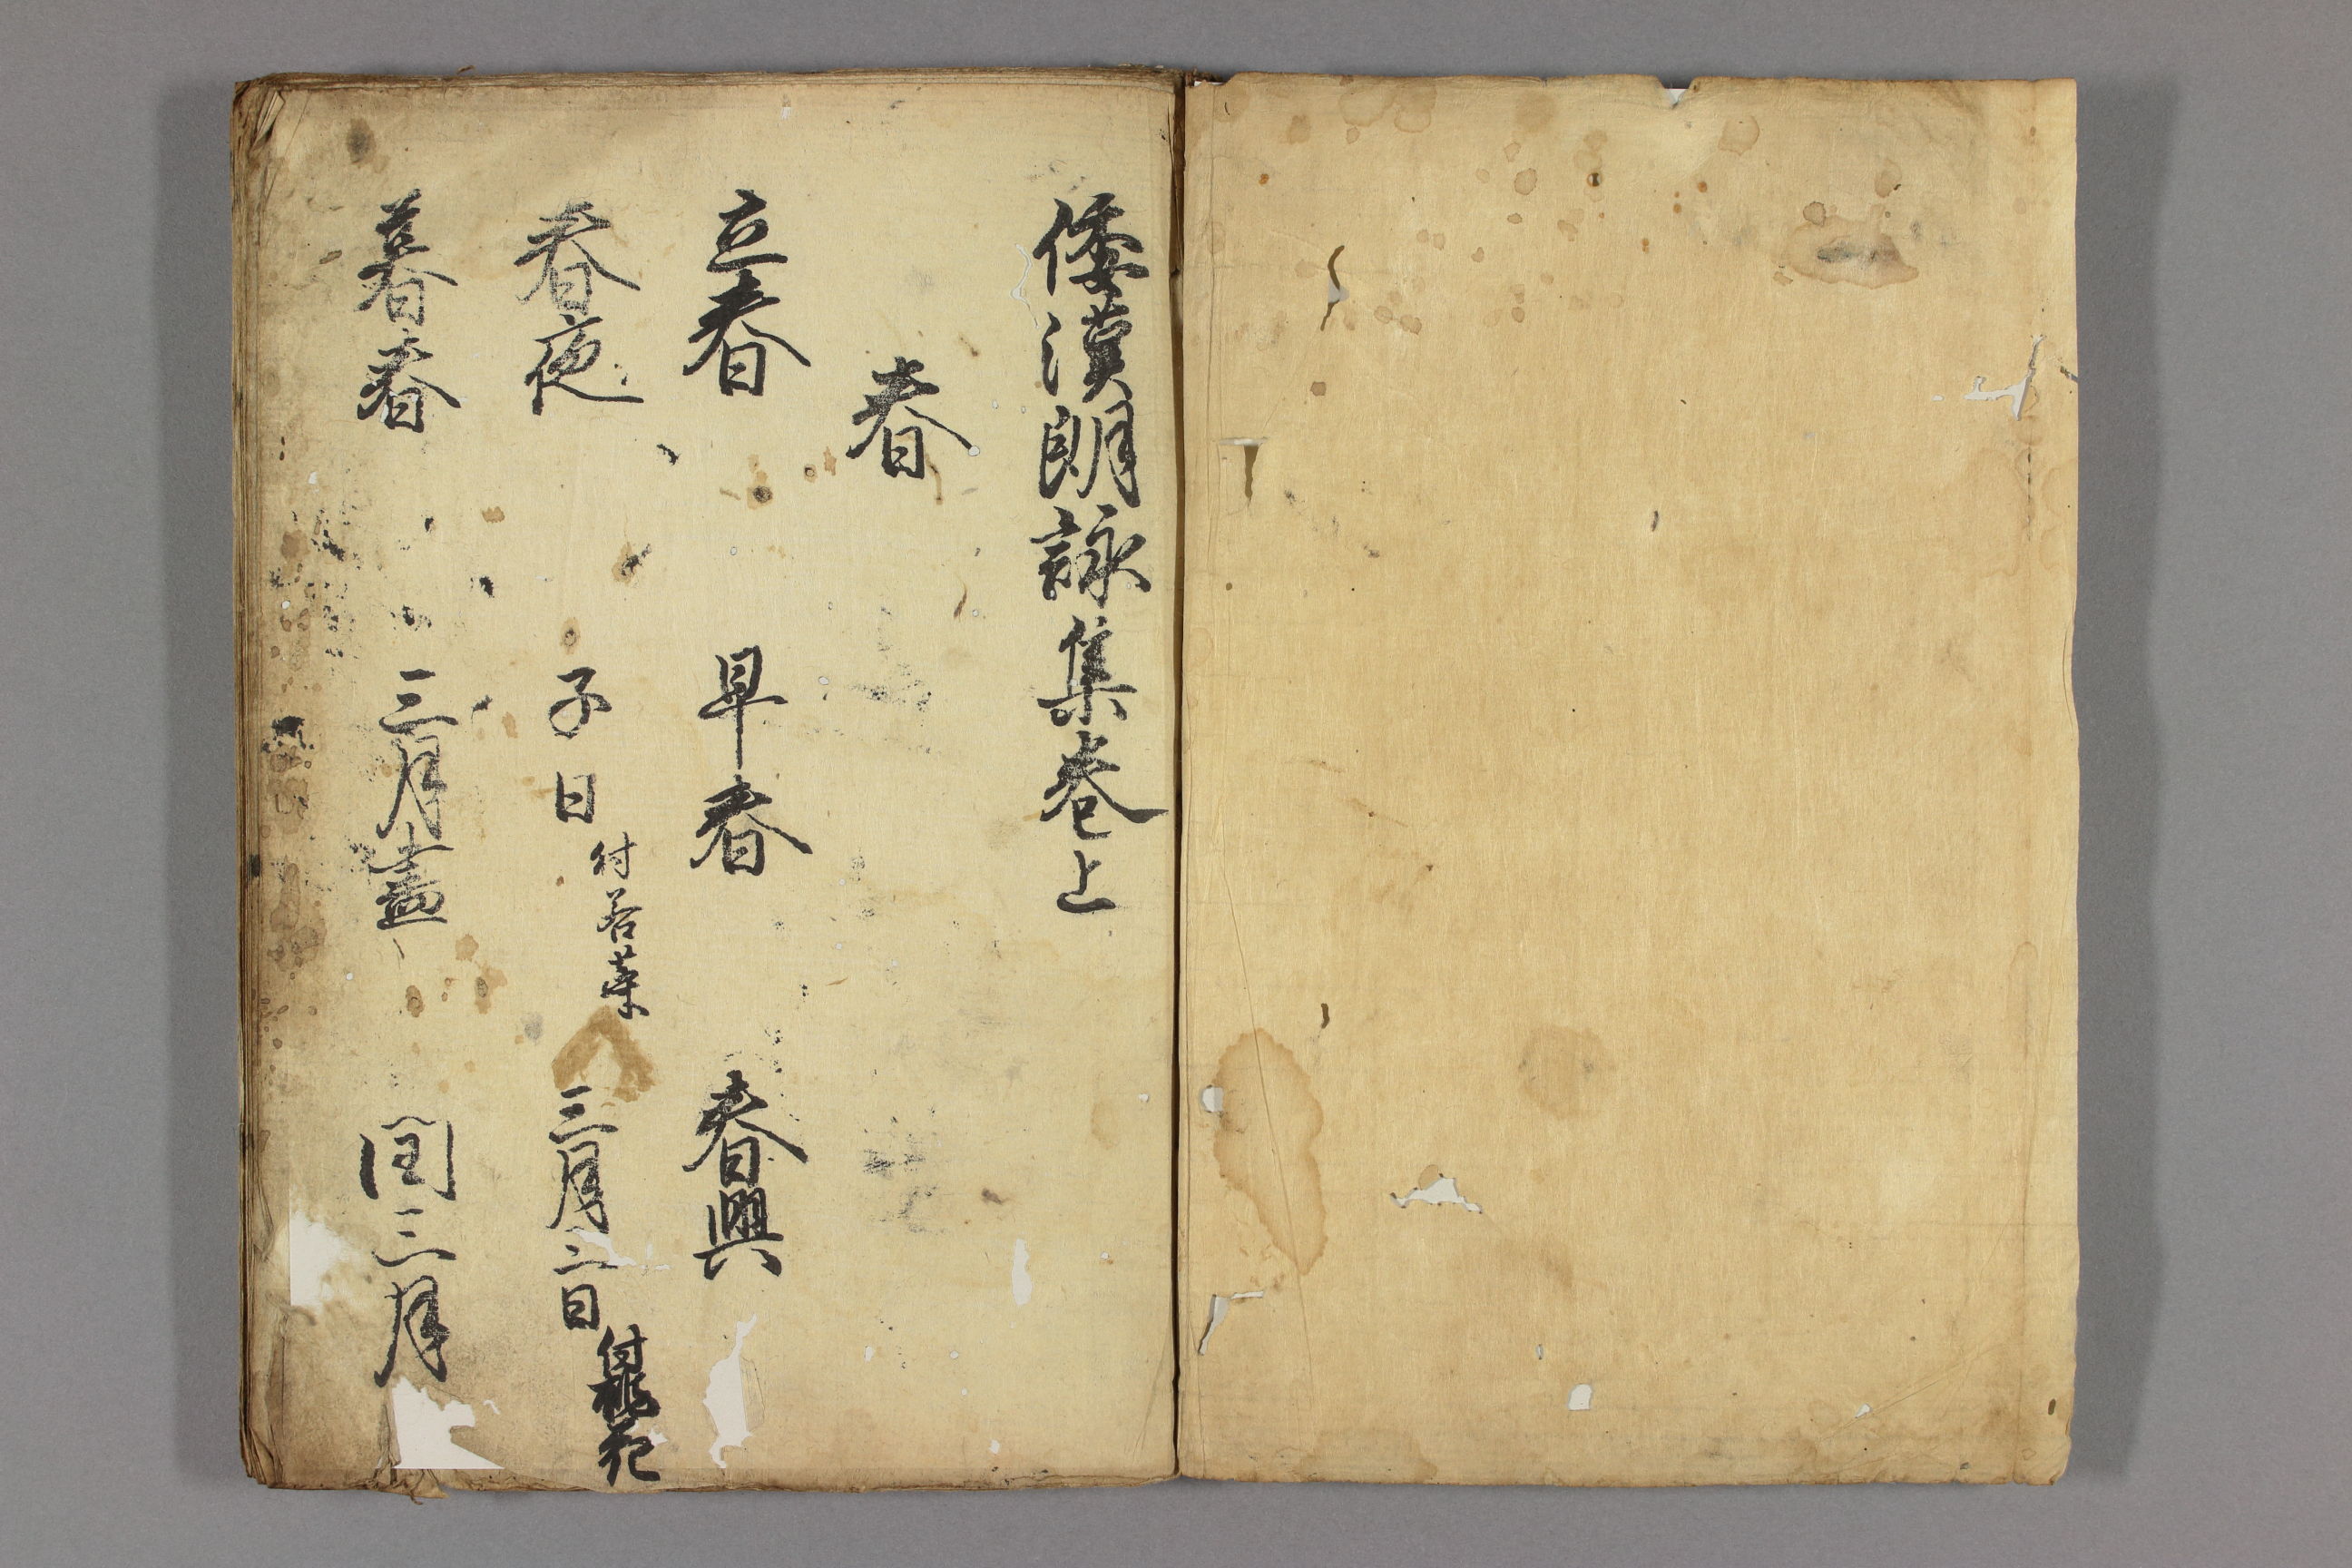 倭漢朗詠集巻上
春
立春 早春 春興
春夜 子日付若菜 三月三日付桃花
暮春 三月盡 閏三月